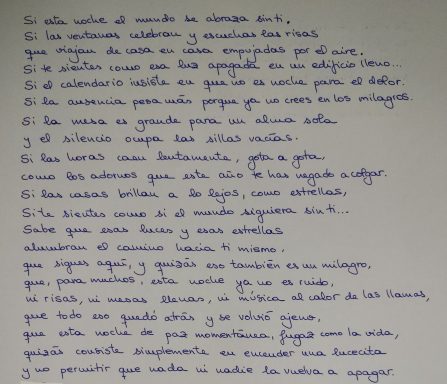 Si esta noche el mundo se abraza sin ti.
Si las ventanas celebran y escuchas las risas
que viajan de casa en casa empujadas por el aire.
Si te sientes como esa luz apagada en un edificio lleno...
Si el calendario insiste en que no es noche para el dolor.
Si la ausencia pesa más porque ya no crees en los milagros.
Si la mesa es grande para un alma sola
y el silencio ocupa las sillas vacías.
Si las horas caen lentamente, gota a gota,
como los adornos que este año te has negado a colgar.
Si las casas brillan a lo lejos, como estrellas,
Si te sientes como si el mundo siguiera sin ti...
Sabe que esas luces y esas estrellas
alumbran el camino hacia ti mismo,
que sigues aquí, y quizás eso también es un milagro,
que, para muchos, esta noche ya no es ruido,
ni risas, ni mesas llenas, ni música al calor de las llamas,
que todo eso quedó atrás y se volvió ajeno,
que esta noche de paz momentánea, fugaz como la vida,
quizás consiste simplemente en encender una lucecita
y no permitir que nada ni nadie la vuelva a apagar.